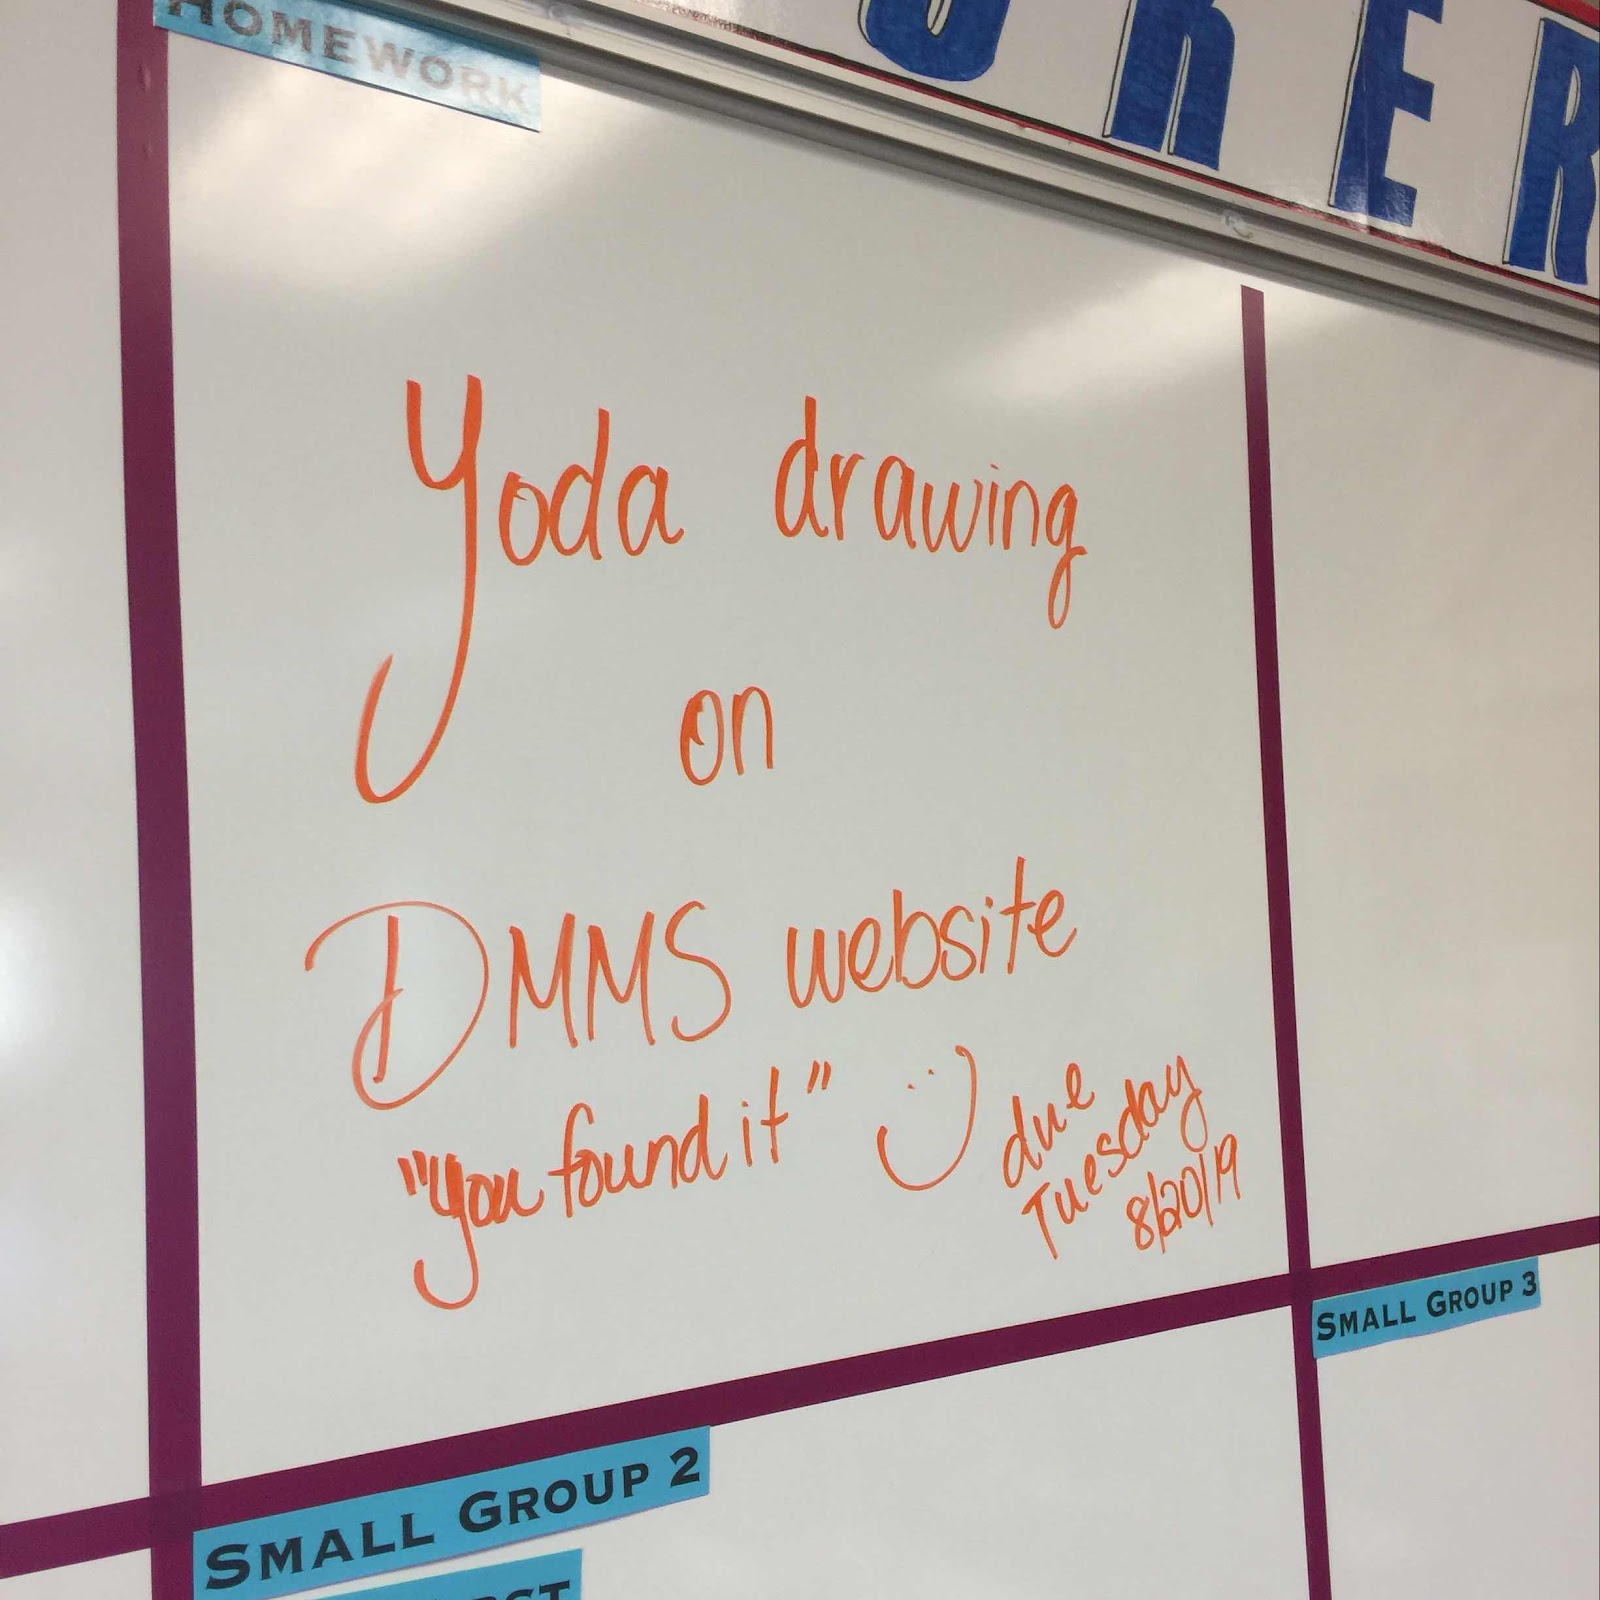 HOMEWORK
Yoda drawing
on
DMMS website
"you found it"
due
Tuesday
8/20/19
SMALL GROUP 3
SMALL GROUP 2